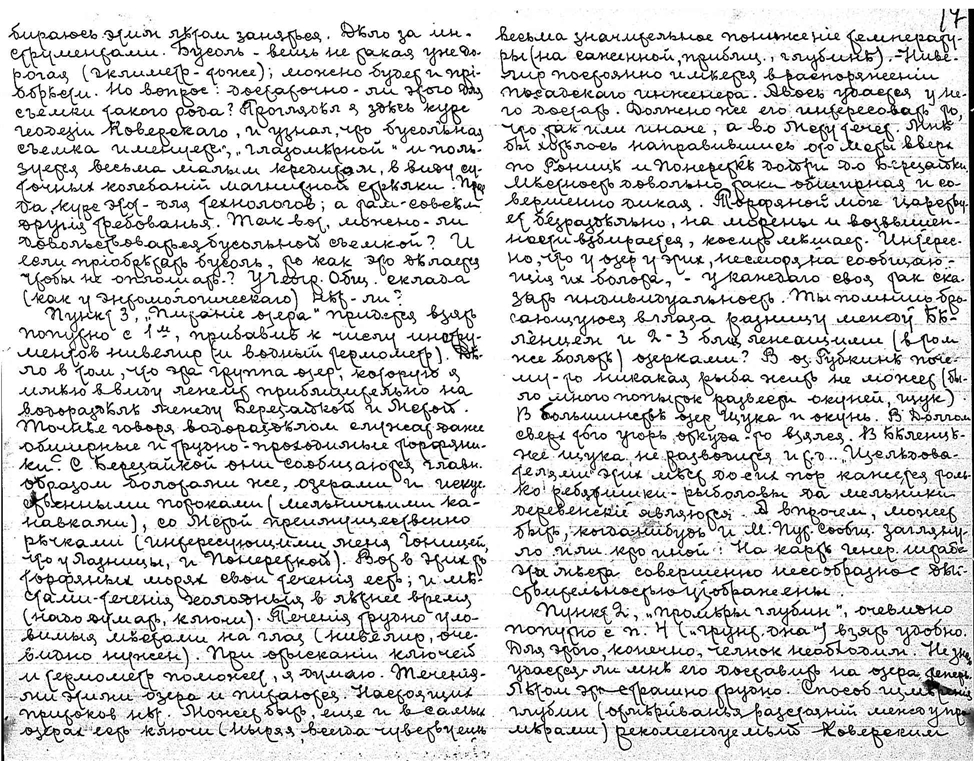 бираюсь этим лѣтом заняться. Дѣло за ин-
струментами. Бусоль - вещь не такая уже до-
рогая (эклиметр - тоже); можно будет и прі-
обрѣсти. Но вопрос: достаточно-ли этого для
съёмки такого рода? Проглядѣл я здѣсь курс
геодезіи Коверскаго, и узнал, что бусольная
съемка именуется „глазомѣрной“ и поль-
зуется весьма малым кредитом, в виду су-
точных колебаній магнитной стрѣлки. Прав-
да, курс этот - для технологов; а там - совсѣм
другія требованья. Так вот, можно-ли
довольствоваться бусольной съемкой? И
если пріобрѣтать бусоль, то как это дѣлается
чтобы не оплошать? У Геогр. Общ. склада
(как у Энтомологическаго) нѣт-ли?
Пункт 3, „Питаніе озера“ придется взять
попутно с 1м, прибавив к числу инстру-
ментов нивелир (и водный термометр). Дѣ-
ло в том, что эта группа озер, которую я
имѣю в виду лежит приблизительно на
водораздѣлѣ между Березайкой и Мстой.
Точнѣе говоря водораздѣлом служат даже
обширные и трудно-проходимые торфяни-
ки. С Березайкой они сообщаются главн.
образом болотами же, озерами и искус-
ственными потоками (мельничьими ка-
навками), со Мстой преимущественно
рѣчками (интересующими меня Гонищей,
что у Лазницы, и Понереткой). Вот в этих-то
торфяных морях свои теченія есть; и мѣ-
стами-теченія холодныя в лѣтнее время
(надо думать, ключи). Теченія трудно уло-
вимыя мѣстами на глаз (нивелир, оче-
видно нужен). При отысканіи ключей
и термометр поможет, я думаю. Теченія-
ми этими озера и питаются. Настоящих
притоков нѣт. Может быть, еще и в самых
озерах есть ключи (ныряя, всегда чувствуешь
17
весьма значительное пониженіе температу-
ры (на саженной, приблиз., глубинѣ). Ниве-
лир постоянно имѣется в распоряженіи
посадскаго инженера. Авось удастся у не-
го достать. Должно же его интересовать то,
что, так или иначе, а во Мсту течет. Мнѣ
бы хотѣлось направившись ото Мсты вверх
по Гонищѣ и Понереткѣ дойти до Березайки.
Мѣстность довольно таки обширная и со-
вершенно дикая. Торфяной мох царству-
ет безраздѣльно, на морены и возвышен-
ности взбирается, косить мѣшает. Интерес-
но, что у озер у этих, несмотря на сообщаю-
щія их болота, - у каждаго своя так ска-
зать индивидуальность. Ты помнишь бро-
сающуюся в глаза разницу между Бѣ-
ленцем и 2-3 близлежащими (в том
же болотѣ) озерками? В оз. Губкинѣ поче-
му-то никакая рыба жить не может (бы-
ло много попыток развести окуней, щук).
В большинствѣ озер щука и окунь. В Долгом
сверх того угорь откуда-то взялся. В Бѣленцѣ-
же щука не разводится и т.д.. Изслѣдова-
телями этих мѣст до сих пор кажется толь-
ко ребятишки - рыболовы да мельники
деревенскіе являются. А впрочем, может
быть, когда нибудь и М. Пут. Сообщ. загляну-
ло или кто иной: На картѣ генер. штаба
эти мѣста совершенно несообразно с дѣй-
ствительностью изображены.
Пункт 2, „Промѣры глубин“, очевидно
попутно с п. 4 („грунт. дна“) взять удобно.
Для этого, конечно, челнок необходим. Не знаю
удастся-ли мнѣ его доставить на озера теперь.
Лѣтом это страшно трудно. Способ измѣренія
глубин (отмѣриванья разстояній между про-
мѣрами) рекомендуемый Коверским